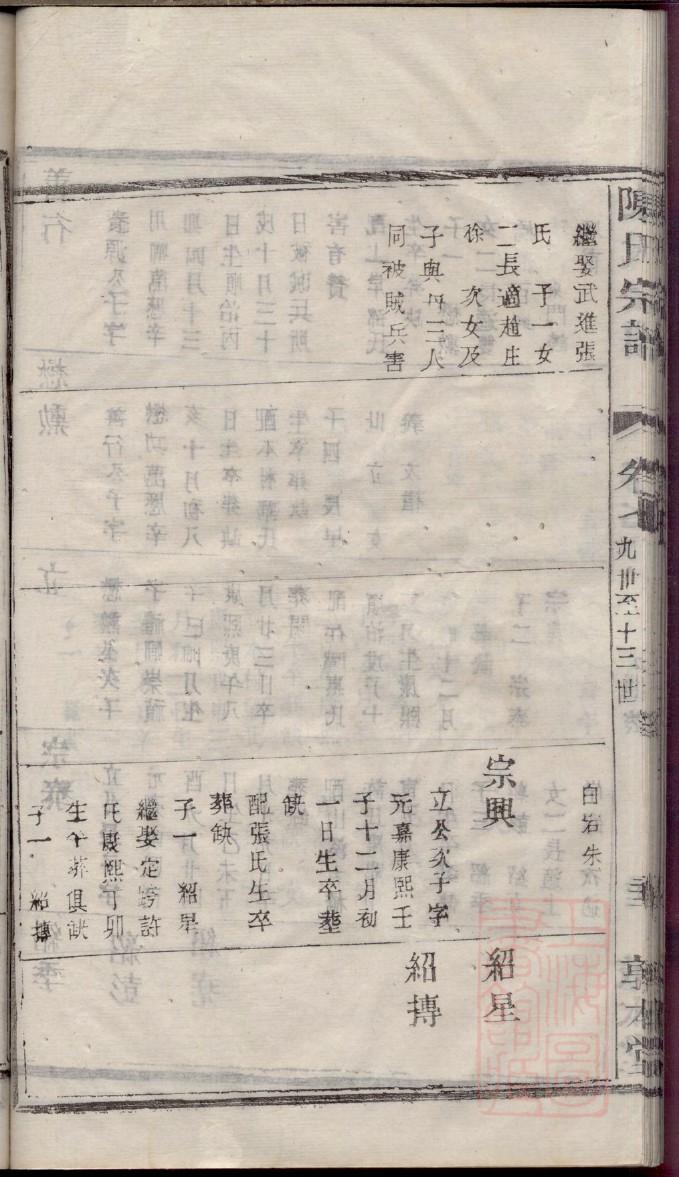 陳氏宗譜
卷七
九世至十三世
敦本堂
繼娶武進張
氏 子一女
二長適趙庄
徐 次女及
子與母三人
同被賊兵害
白岩朱
宗興
立公次子字
元嘉康熙壬
子十二月初
一日生卒塟
缺
配張氏生卒
葬缺
子一 紹星
繼娶定埼許
氏康熙丁卯
生卒葬俱缺
子一 紹摶
紹星
紹摶